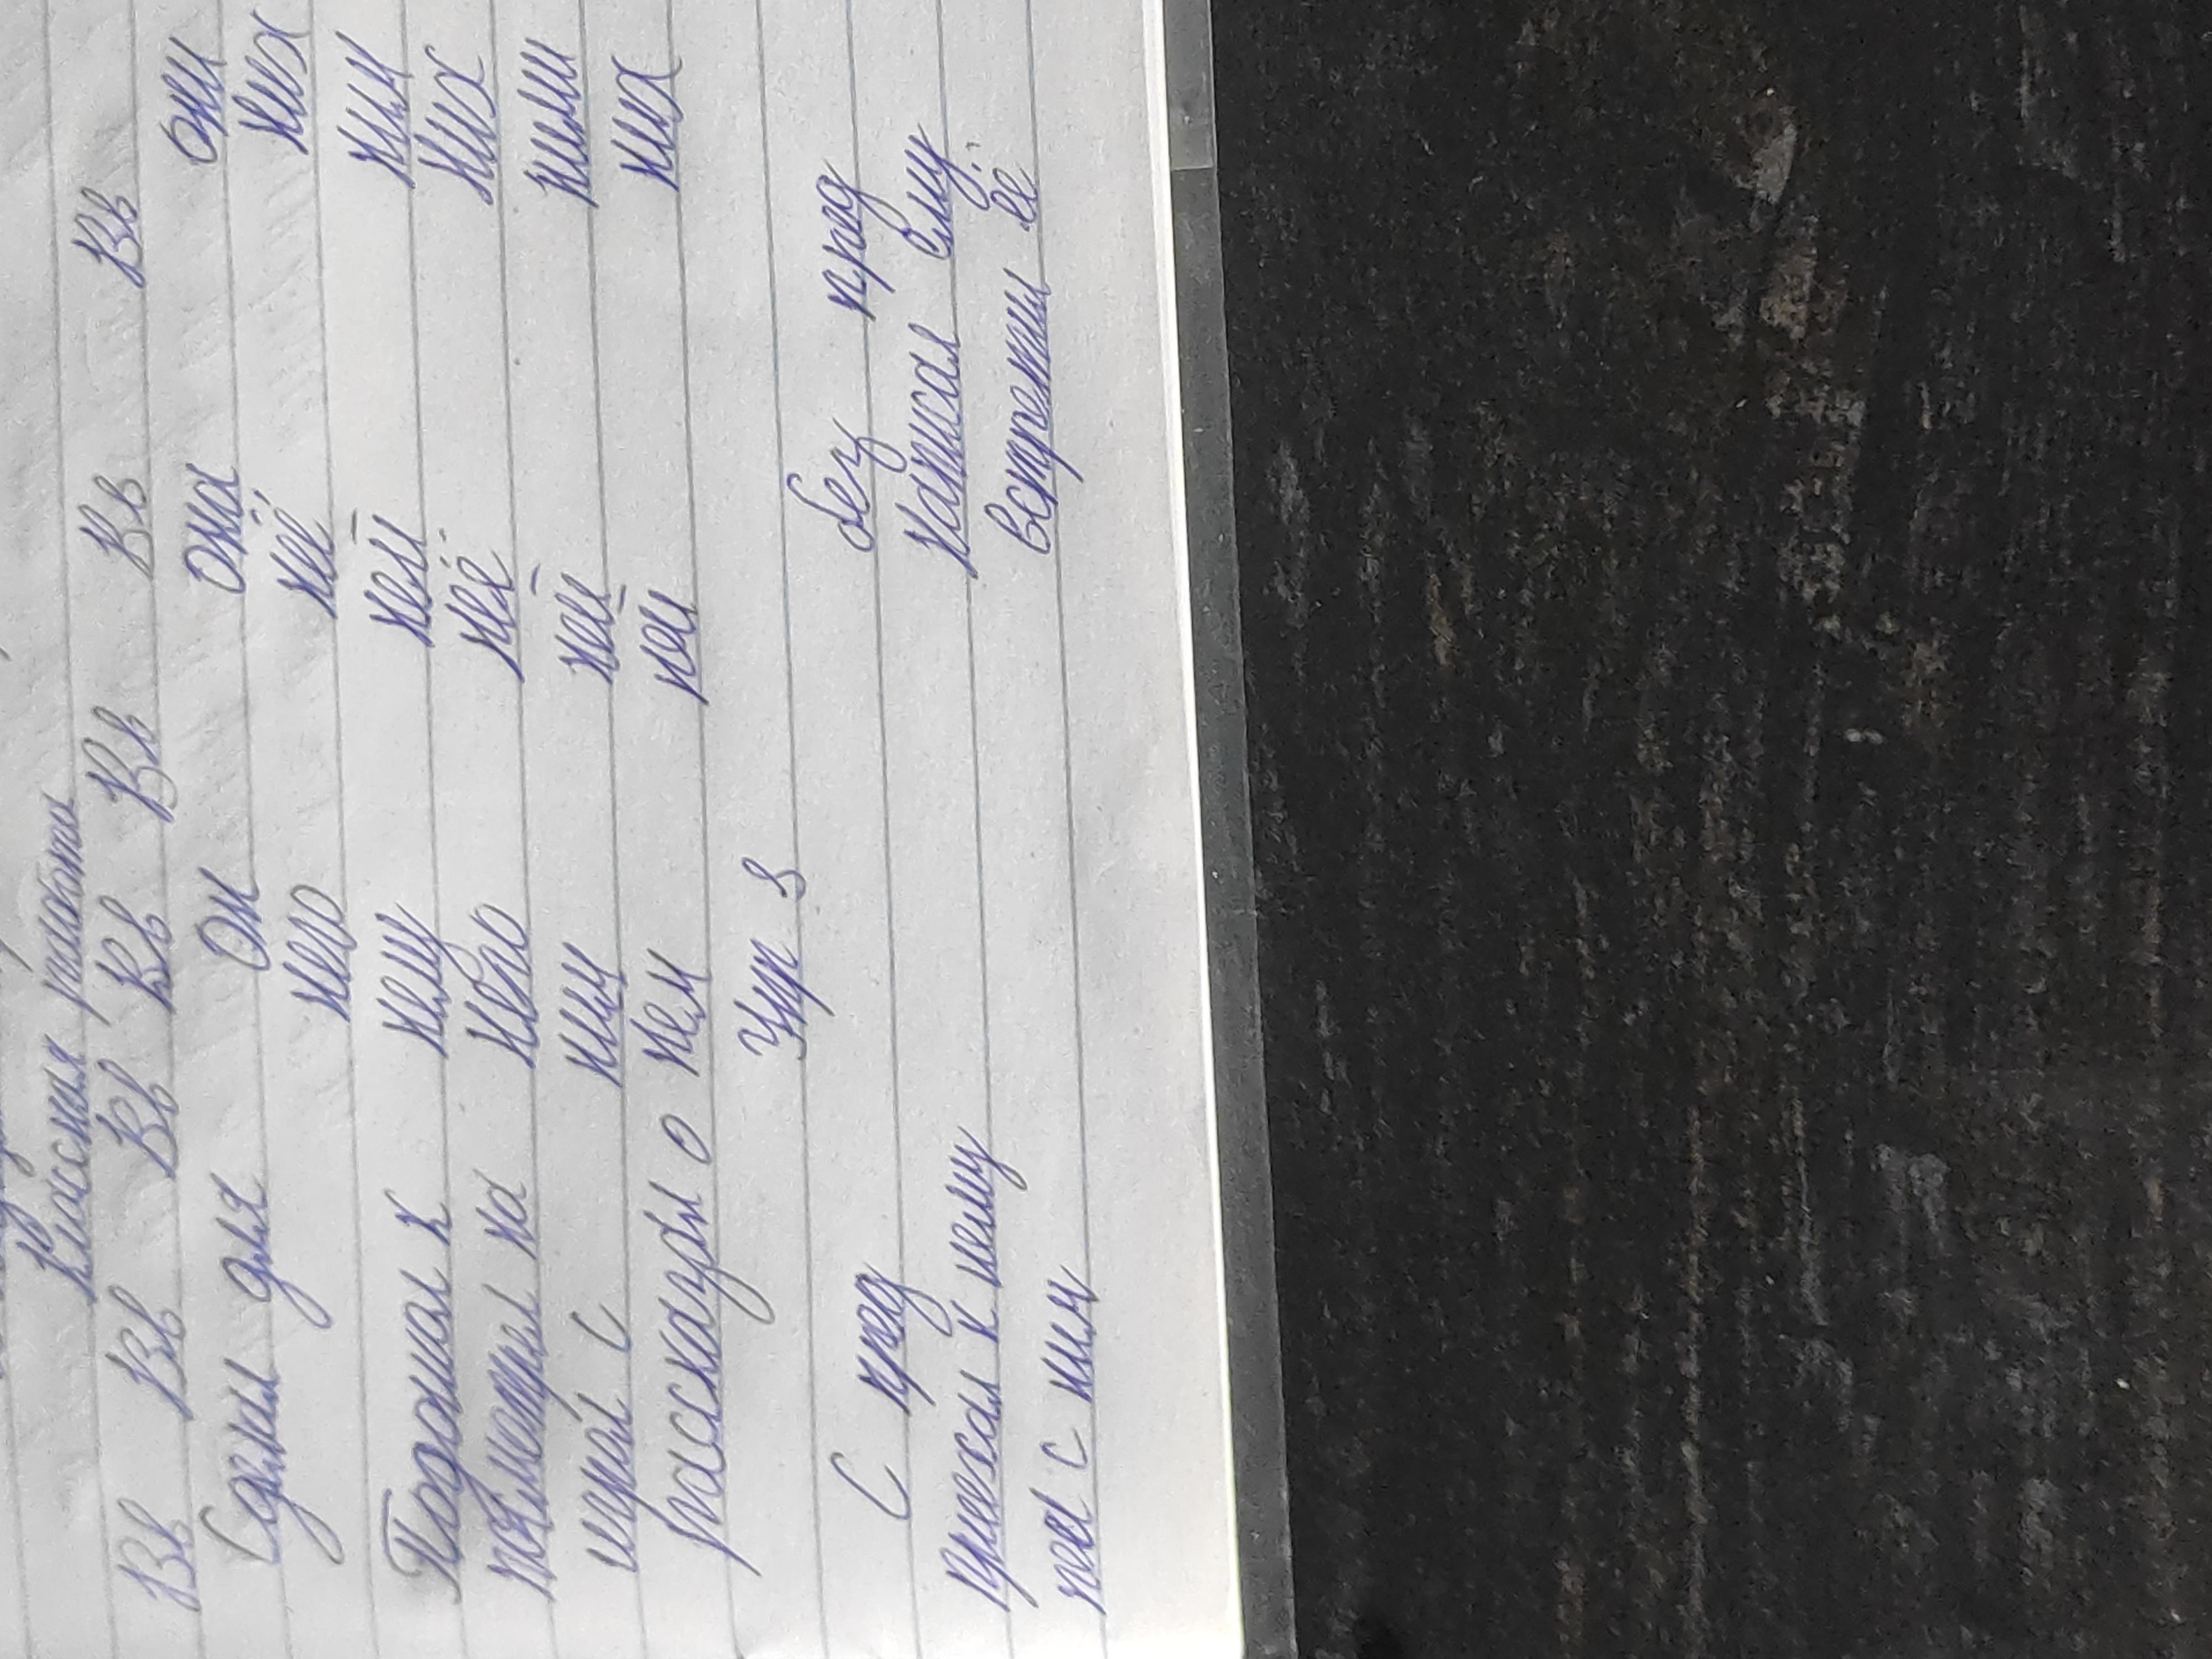 Классная работа
Вв Вв Вв Вв Вв Вв Вв
Он она они
Сделал для него неё них
Подошел к нему ней ним
посмотрел на него неё них
играл с ним ней ними
рассказал о нем ней них
Упр 3
С пред без пред
приехал к нему написал ему
пел с ним встретил её